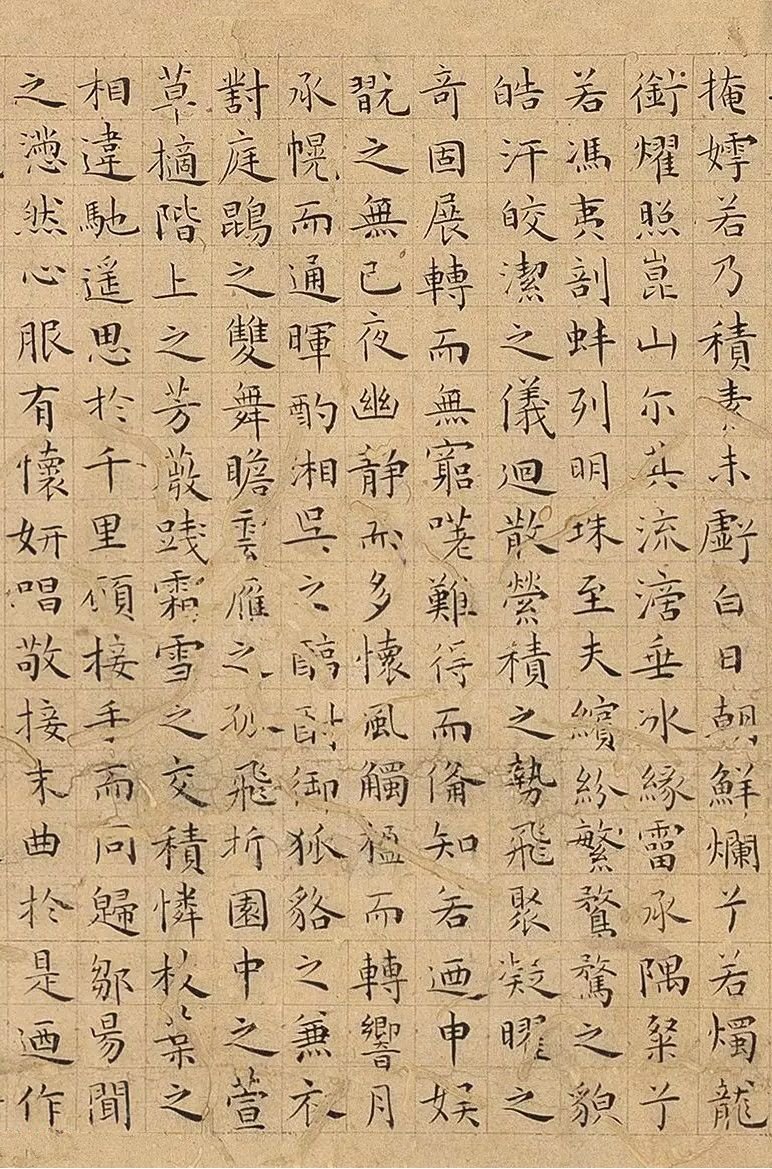 掩嫮若乃積素未虧白日朝鮮爛兮若燭龍
銜燿照崑山尔其流滴垂冰緣霤承隅粲兮
若馮夷剖蚌列明珠至夫繽紛繁騖之貌
皓汗皎潔之儀迴散縈積之勢飛聚凝曜之
奇固展轉而無窮嗟難得而俻知若迺申娛
翫之無已夜幽靜而多懷風觸楹而轉響月
承幌而通暉酌湘吳之醇酎御狐貉之兼衣
對庭鵾之雙舞瞻雲雁之孤飛折園中之萱
草摘階上之芳薇踐霜雪之交積憐枝葉之
相違馳遥思於千里願接手而同歸鄒陽聞
之懣然心服有懷妍唱敬接末曲於是迺作